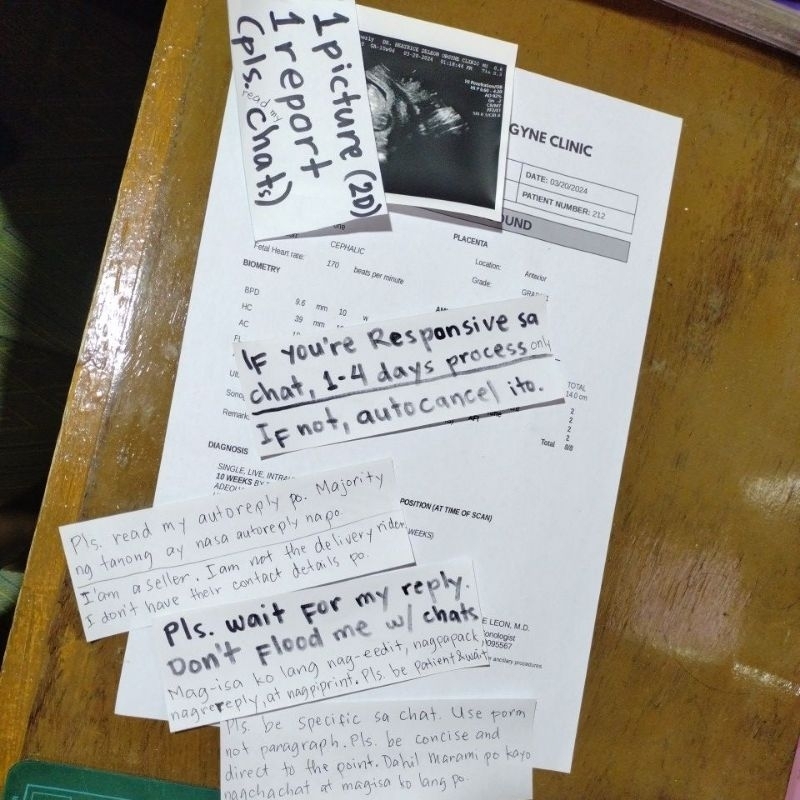 1 picture (2D)
1 report
(pls. read my chats)
DR. BEATRICE DELEON OBGYNE CLINIC
03-20-2024
GYNE CLINIC
DATE: 03/20/2024
PATIENT NUMBER: 212
OUND
Fetal Heart rate:
CEPHALIC
170 beats per minute
PLACENTA
Location: Anterior
Grade:
BIOMETRY
BPD 9.6 mm 10 w
HC 39 mm
AC
FL
IF you're Responsive sa
chat, 1-4 days process only
IF not, autocancel ito.
TOTAL
14.0 cm
2
2
2
2
Total 8/8
Remark
DIAGNOSIS
SINGLE, LIVE,
10 WEEKS BY
POSITION (AT TIME OF SCAN)
WEEKS)
Pls. read my autoreply po. Majority
ng tanong ay nasa autoreply na po.
I'am a seller. I am not the delivery rider.
I don't have their contact details po.
Pls. wait for my reply.
Don't Flood me w/ chats
Mag-isa ko lang nag-eedit, nagpapack,
nagrereply, at nagpiprint. Pls. be patient & wait.
E LEON, M.D.
onologist
095567
ancillary procedures
Pls. be specific sa chat. Use form
not paragraph. Pls. be concise and
direct to the point. Dahil marami po kayo
nagchachat at magisa ko lang po.